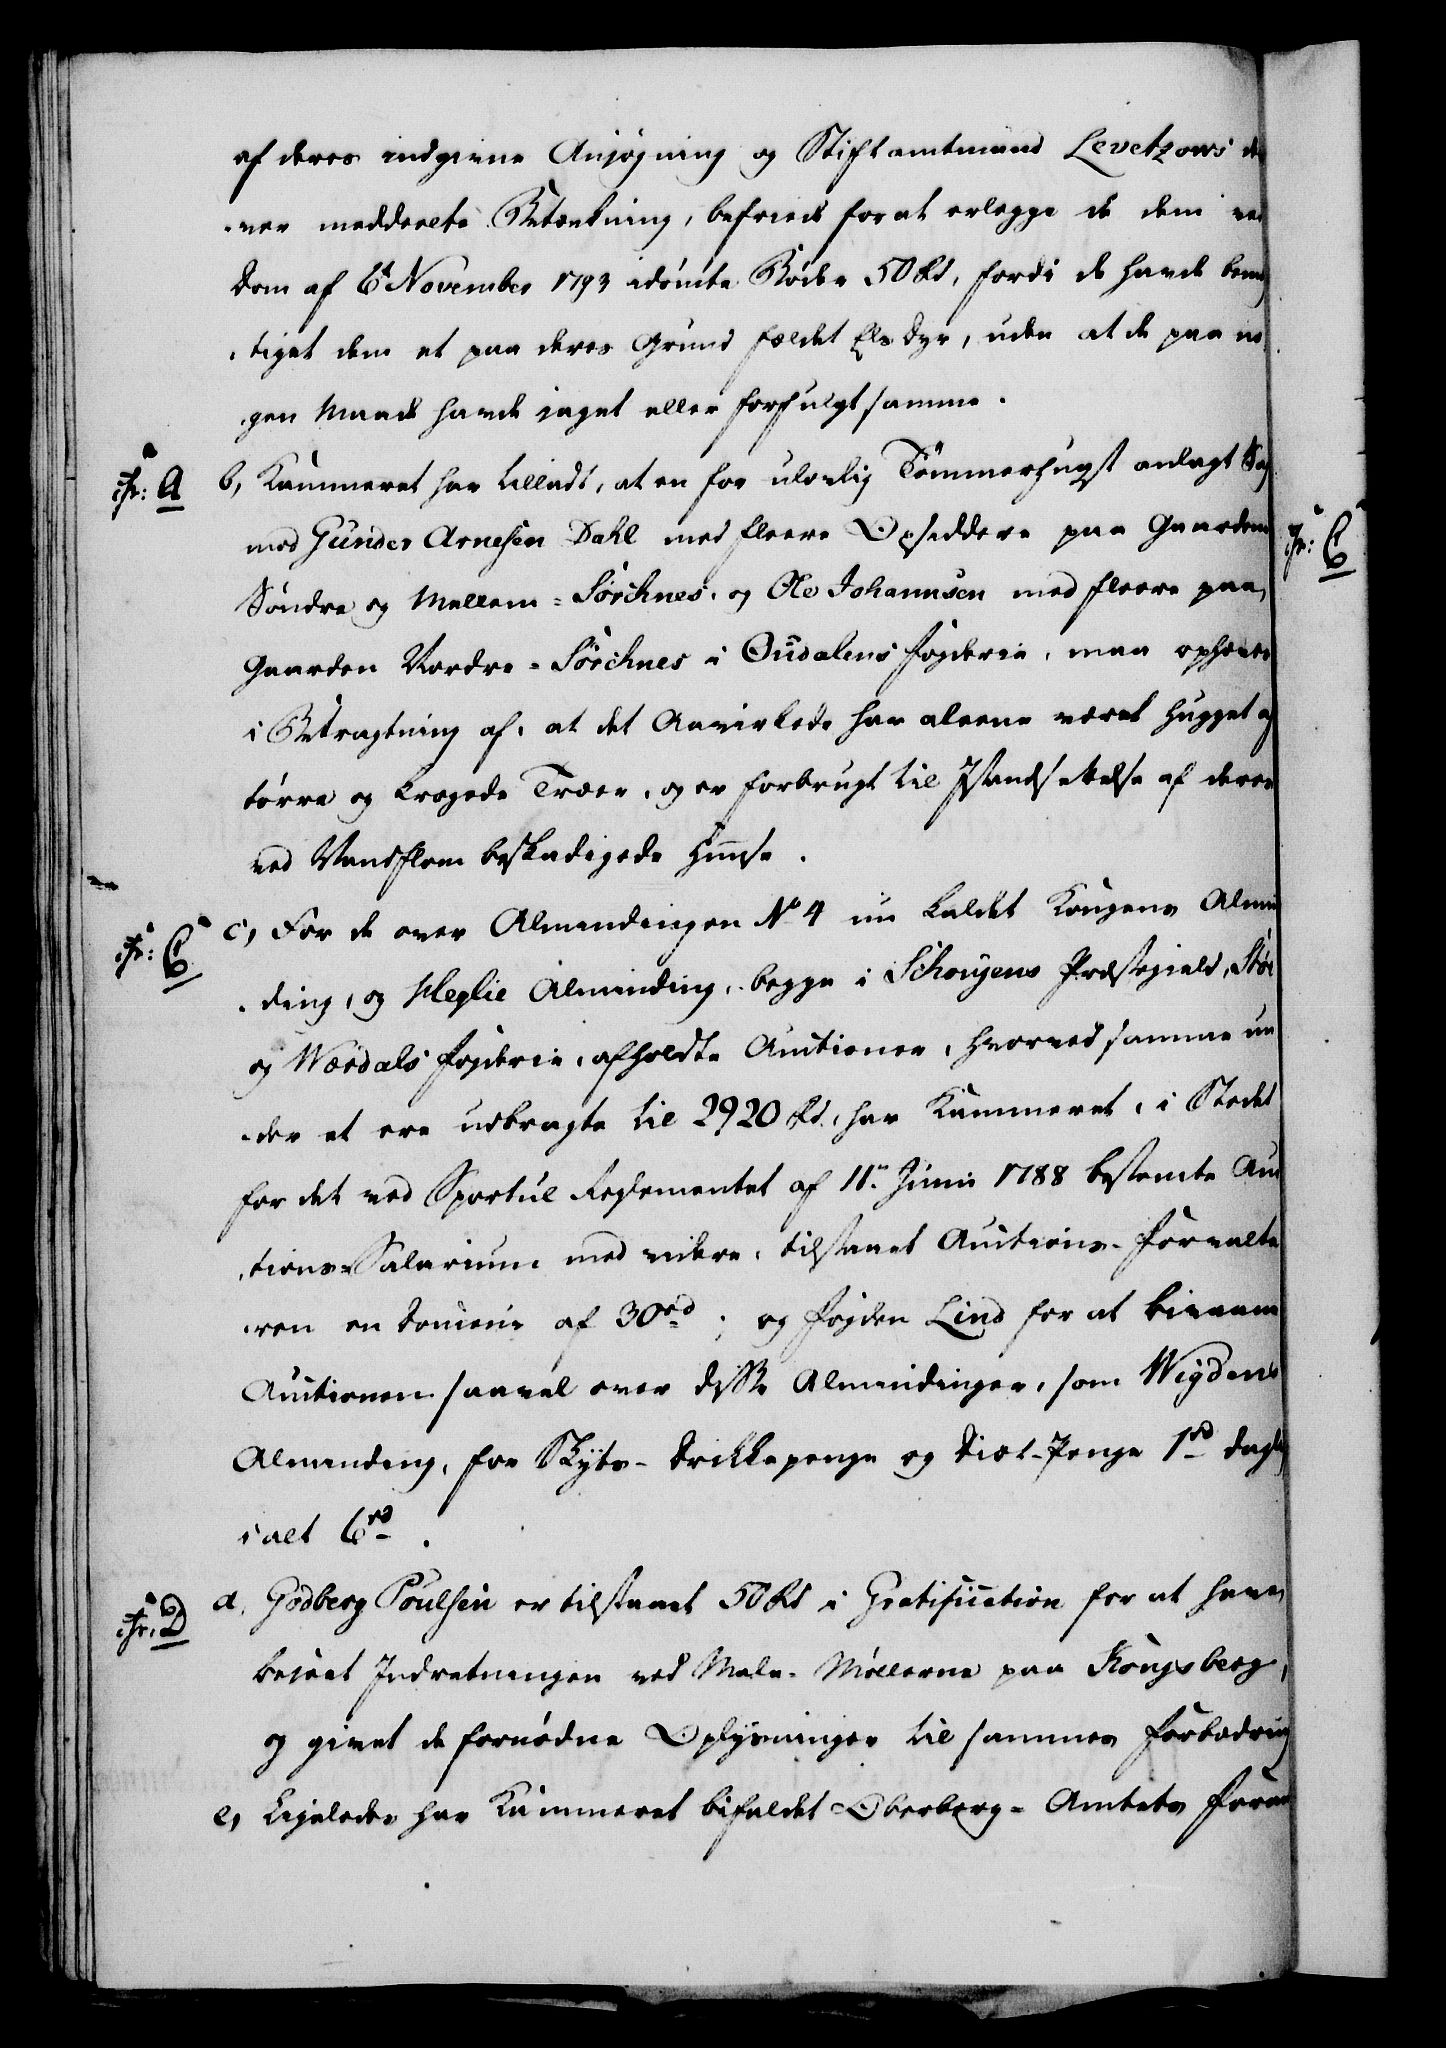 af deres indgivne Ansøgning og Stiftamtmand Levetzows der
over meddeelte Betænkning, befriede for at erlegge de dem ved
Dom af 6te November 1793 idømte Bøder 50 Rd, fordi de havde bemæg
tiget dem et paa deres Grund fældet Els Dyr, uden at de paa no
gen Maade havde jaget eller forfulgt samme.
cfr: A b, Kammeret har tilladt, at en for ulovlig Tømmerhugst anlagt Sag
mod Gunder Arnesen Dahl med fleere Opsiddere paa Gaardene
Søndre og Mellem-Sørchnes, og Ole Johannsen med fleere paa
Gaarden Nordre-Sørchnes i Oudalens Fogderie, maa ophæves
i Betragtning af, at det Aavirkede har aleene været hugget af
tørre og krogede Træer, og er forbrugt til Istandsettelse af deres
ved Vandflom beskadigede Huuse.
cfr: C c, For de over Almindingen No 4 nu kaldet Kongens Almin
ding, og Heglie Alminding, begge i Schougens Præstegield, Stør
og Værdals Fogderie, afholdte Auctioner, hvorved samme un
der et ere udbragte til 2920 Rd, har Kammeret, i Stedet
for det ved Sportul Reglementet af 11te Junii 1788 bestemte Auc
tions-Salarium med videre, tilstaaet Auctions-Forvalte
ren en Douceur af 30 rd; og Fogden Lind for at bivaane
Auctionen saavel over disse Almindinger, som Wigdens
Alminding, for Skyds- Drikkepenge og Diæt-Penge 1 rd daglig
ialt 6 rd.
cfr: D d. Godberg Poulsen er tilstaaet 50 Rd i Gratification for at have
beseet Indretningen ved Male-Møllerne paa Kongsberg,
og givet de fornødne Oplysninger til sammes Forbedring
e, Ligeledes har Kammeret bifaldet Oberberg-Amtets Foran
cfr: C